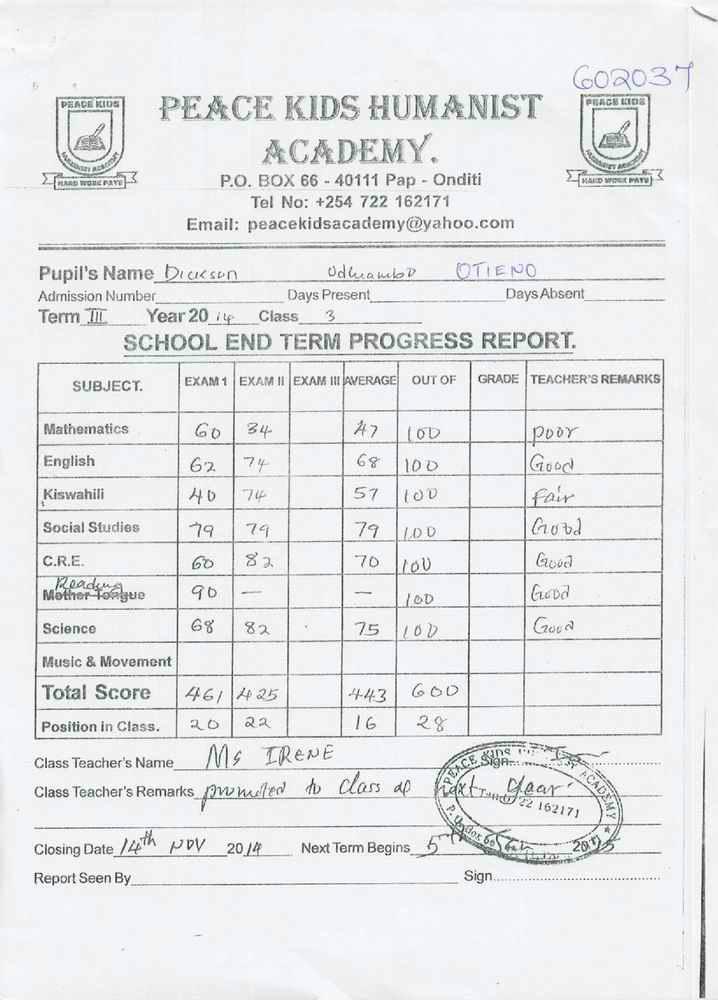 602037
PEACE KIDS
HARD WORK PAYS
PEACE KIDS HUMANIST
ACADEMY.
PEACE KIDS
HARD WORK PAYS
P.O. BOX 66 - 40111 Pap - Onditi
Tel No: +254 722 162171
Email: peacekidsacademy@yahoo.com
Pupil's Name Dickson Odhiambo OTIENO
Admission Number Days Present Days Absent
Term III Year 20 14 Class 3
SCHOOL END TERM PROGRESS REPORT.
SUBJECT. EXAM 1 EXAM II EXAM III AVERAGE OUT OF GRADE TEACHER'S REMARKS
Mathematics 60 34 47 100 poor
English 62 74 68 100 Good
Kiswahili 40 74 57 100 fair
Social Studies 79 79 79 100 Good
C.R.E. 60 82 70 100 Good
Reading
Mother Tongue 90 — — 100 Good
Science 68 82 75 100 Good
Music & Movement
Total Score 461 425 443 600
Position in Class. 20 22 16 28
Class Teacher's Name Ms IRENE Sign
Class Teacher's Remarks promoted to class next year
PEACE KIDS ACADEMY
722 162171
Closing Date 14th NOV 2014 Next Term Begins 5th 2015
Report Seen By Sign